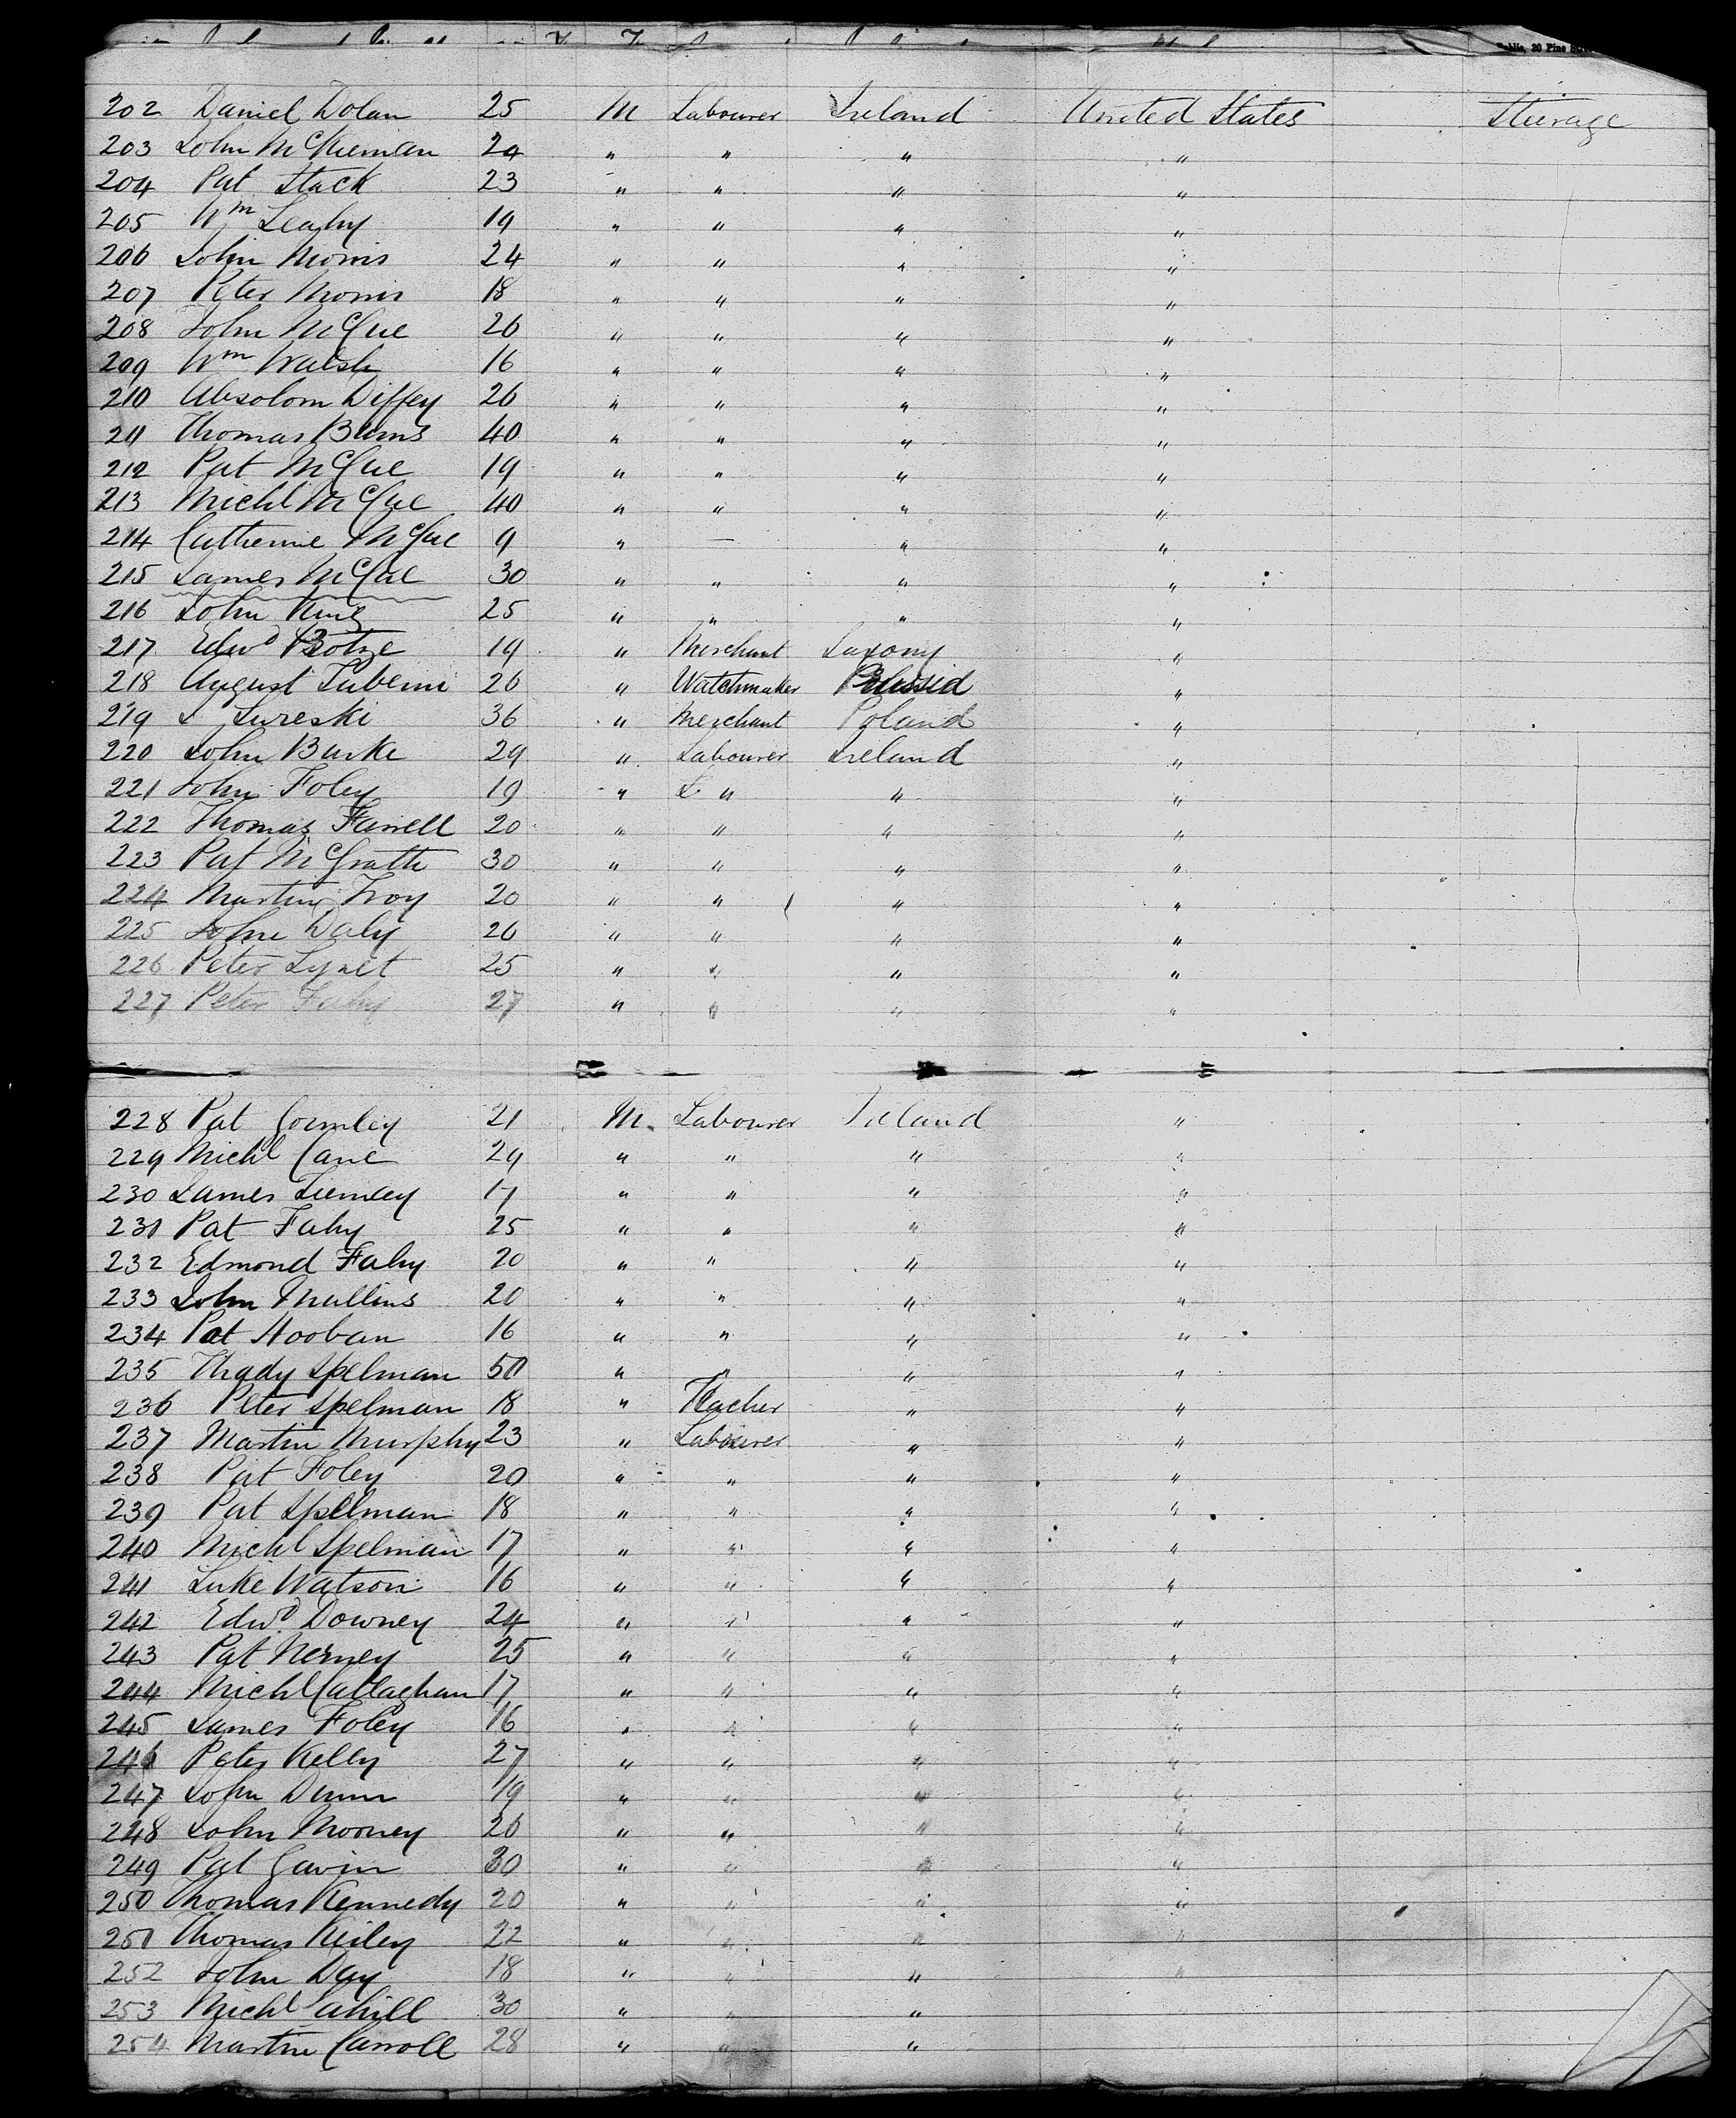 Public, 20 Pine
202 Daniel Dolan 25 M Labourer Ireland United States Steerage
203 John McKiernan 24 " " " "
204 Pat Stack 23 " " " "
205 Wm Leahy 19 " " " "
206 John Morris 24 " " " "
207 Peter Morris 18 " " " "
208 John McGue 26 " " " "
209 Wm Walsh 16 " " " "
210 Absolom Diffey 26 " " " "
211 Thomas Burns 40 " " " "
212 Pat McGue 19 " " " "
213 Michl McGue 40 " " " "
214 Catherine McGue 9 " — " "
215 James McGue 30 " " " "
216 John King 25 " " " "
217 Edwd Botze 19 " Merchant Saxony "
218 August 26 " Watchmaker Prussia "
219 Sureski 36 " Merchant Poland "
220 John Burke 29 " Labourer Ireland "
221 John Foley 19 " " " "
222 Thomas Farrell 20 " " " "
223 Pat McGrath 30 " " " "
224 Martin Troy 20 " " " "
225 John Daly 26 " " " "
226 Peter 25 " " " "
227 Peter Fahy 27 " " " "
228 Pat Gormley 21 M. Labourer Ireland "
229 Michl Cane 29 " " " "
230 James 17 " " " "
231 Pat Fahy 25 " " " "
232 Edmond Fahy 20 " " " "
233 John Mullins 20 " " " "
234 Pat Hooban 16 " " " "
235 Thady Spelman 50 " " " "
236 Peter Spelman 18 " Teacher " "
237 Martin Murphy 23 " Labourer " "
238 Pat Foley 20 " " " "
239 Pat Spelman 18 " " " "
240 Michl Spelman 17 " " " "
241 Luke Watson 16 " " " "
242 Edwd Downey 24 " " " "
243 Pat Nerney 25 " " " "
244 Michl Callaghan 17 " " " "
245 James Foley 16 " " " "
246 Peter Kelly 27 " " " "
247 John Dunn 19 " " " "
248 John Mooney 26 " " " "
249 Pat Gavin 30 " " " "
250 Thomas Kennedy 20 " " " "
251 Thomas Keiley 22 " " " "
252 John Day 18 " " " "
253 Michl Cahill 30 " " "
254 Martin Carroll 28 " " "